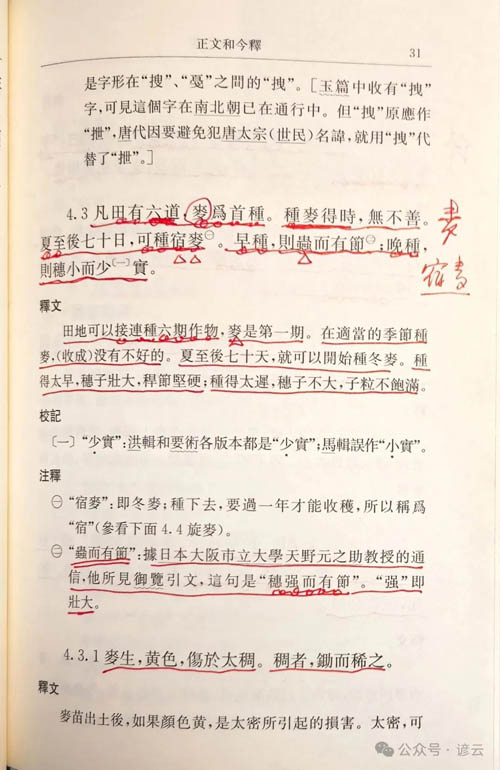 正文和今釋
31
是字形在“拽”、“憂”之間的“拽”。〔玉篇中收有“拽”
字,可見這個字在南北朝已在通行中。但“拽”原應作
“抴”,唐代因要避免犯唐太宗(世民)名諱,就用“拽”代
替了“抴”。〕
4.3 凡田有六道,麥爲首種。種麥得時,無不善。
夏至後七十日,可種宿麥㊀。早種,則蟲而有節㊁;晚種,
則穗小而少〔一〕實。
釋文
田地可以接連種六期作物,麥是第一期。在適當的季節種
麥,(收成)没有不好的。夏至後七十天,就可以開始種冬麥。種
得太早,穗子壯大,稈節堅硬;種得太遲,穗子不大,子粒不飽滿。
校記
〔一〕“少實”:洪輯和要術各版本都是“少實”;馬輯誤作“小實”。
注釋
㊀ “宿麥”:即冬麥;種下去,要過一年才能收穫,所以稱爲
“宿”(參看下面 4.4 旋麥)。
㊁ “蟲而有節”:據日本大阪市立大學天野元之助教授的通
信,他所見御覽引文,這句是“穗强而有節”。“强”即
壯大。
4.3.1 麥生,黄色,傷於太稠。稠者,鋤而稀之。
釋文
麥苗出土後,如果顔色黄,是太密所引起的損害。太密,可
麥
宿麥
公众号·谚云